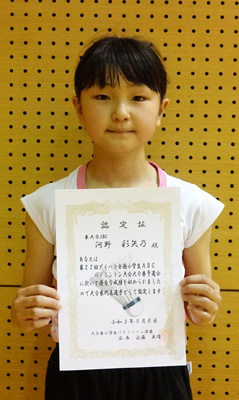 認定証
東大分JBC
河野 彩矢乃 殿
あなたは
第22回ダイハツ全国小学生ABC
バドミントン大会大分県予選会
に於いて優秀な成績を収められました
ので大分県代表選手として認定します
令和3年5月8日
大分県小学生バドミントン連盟
会長